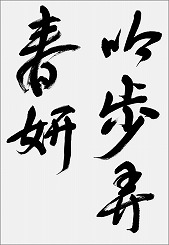 吟歩弄
春妍